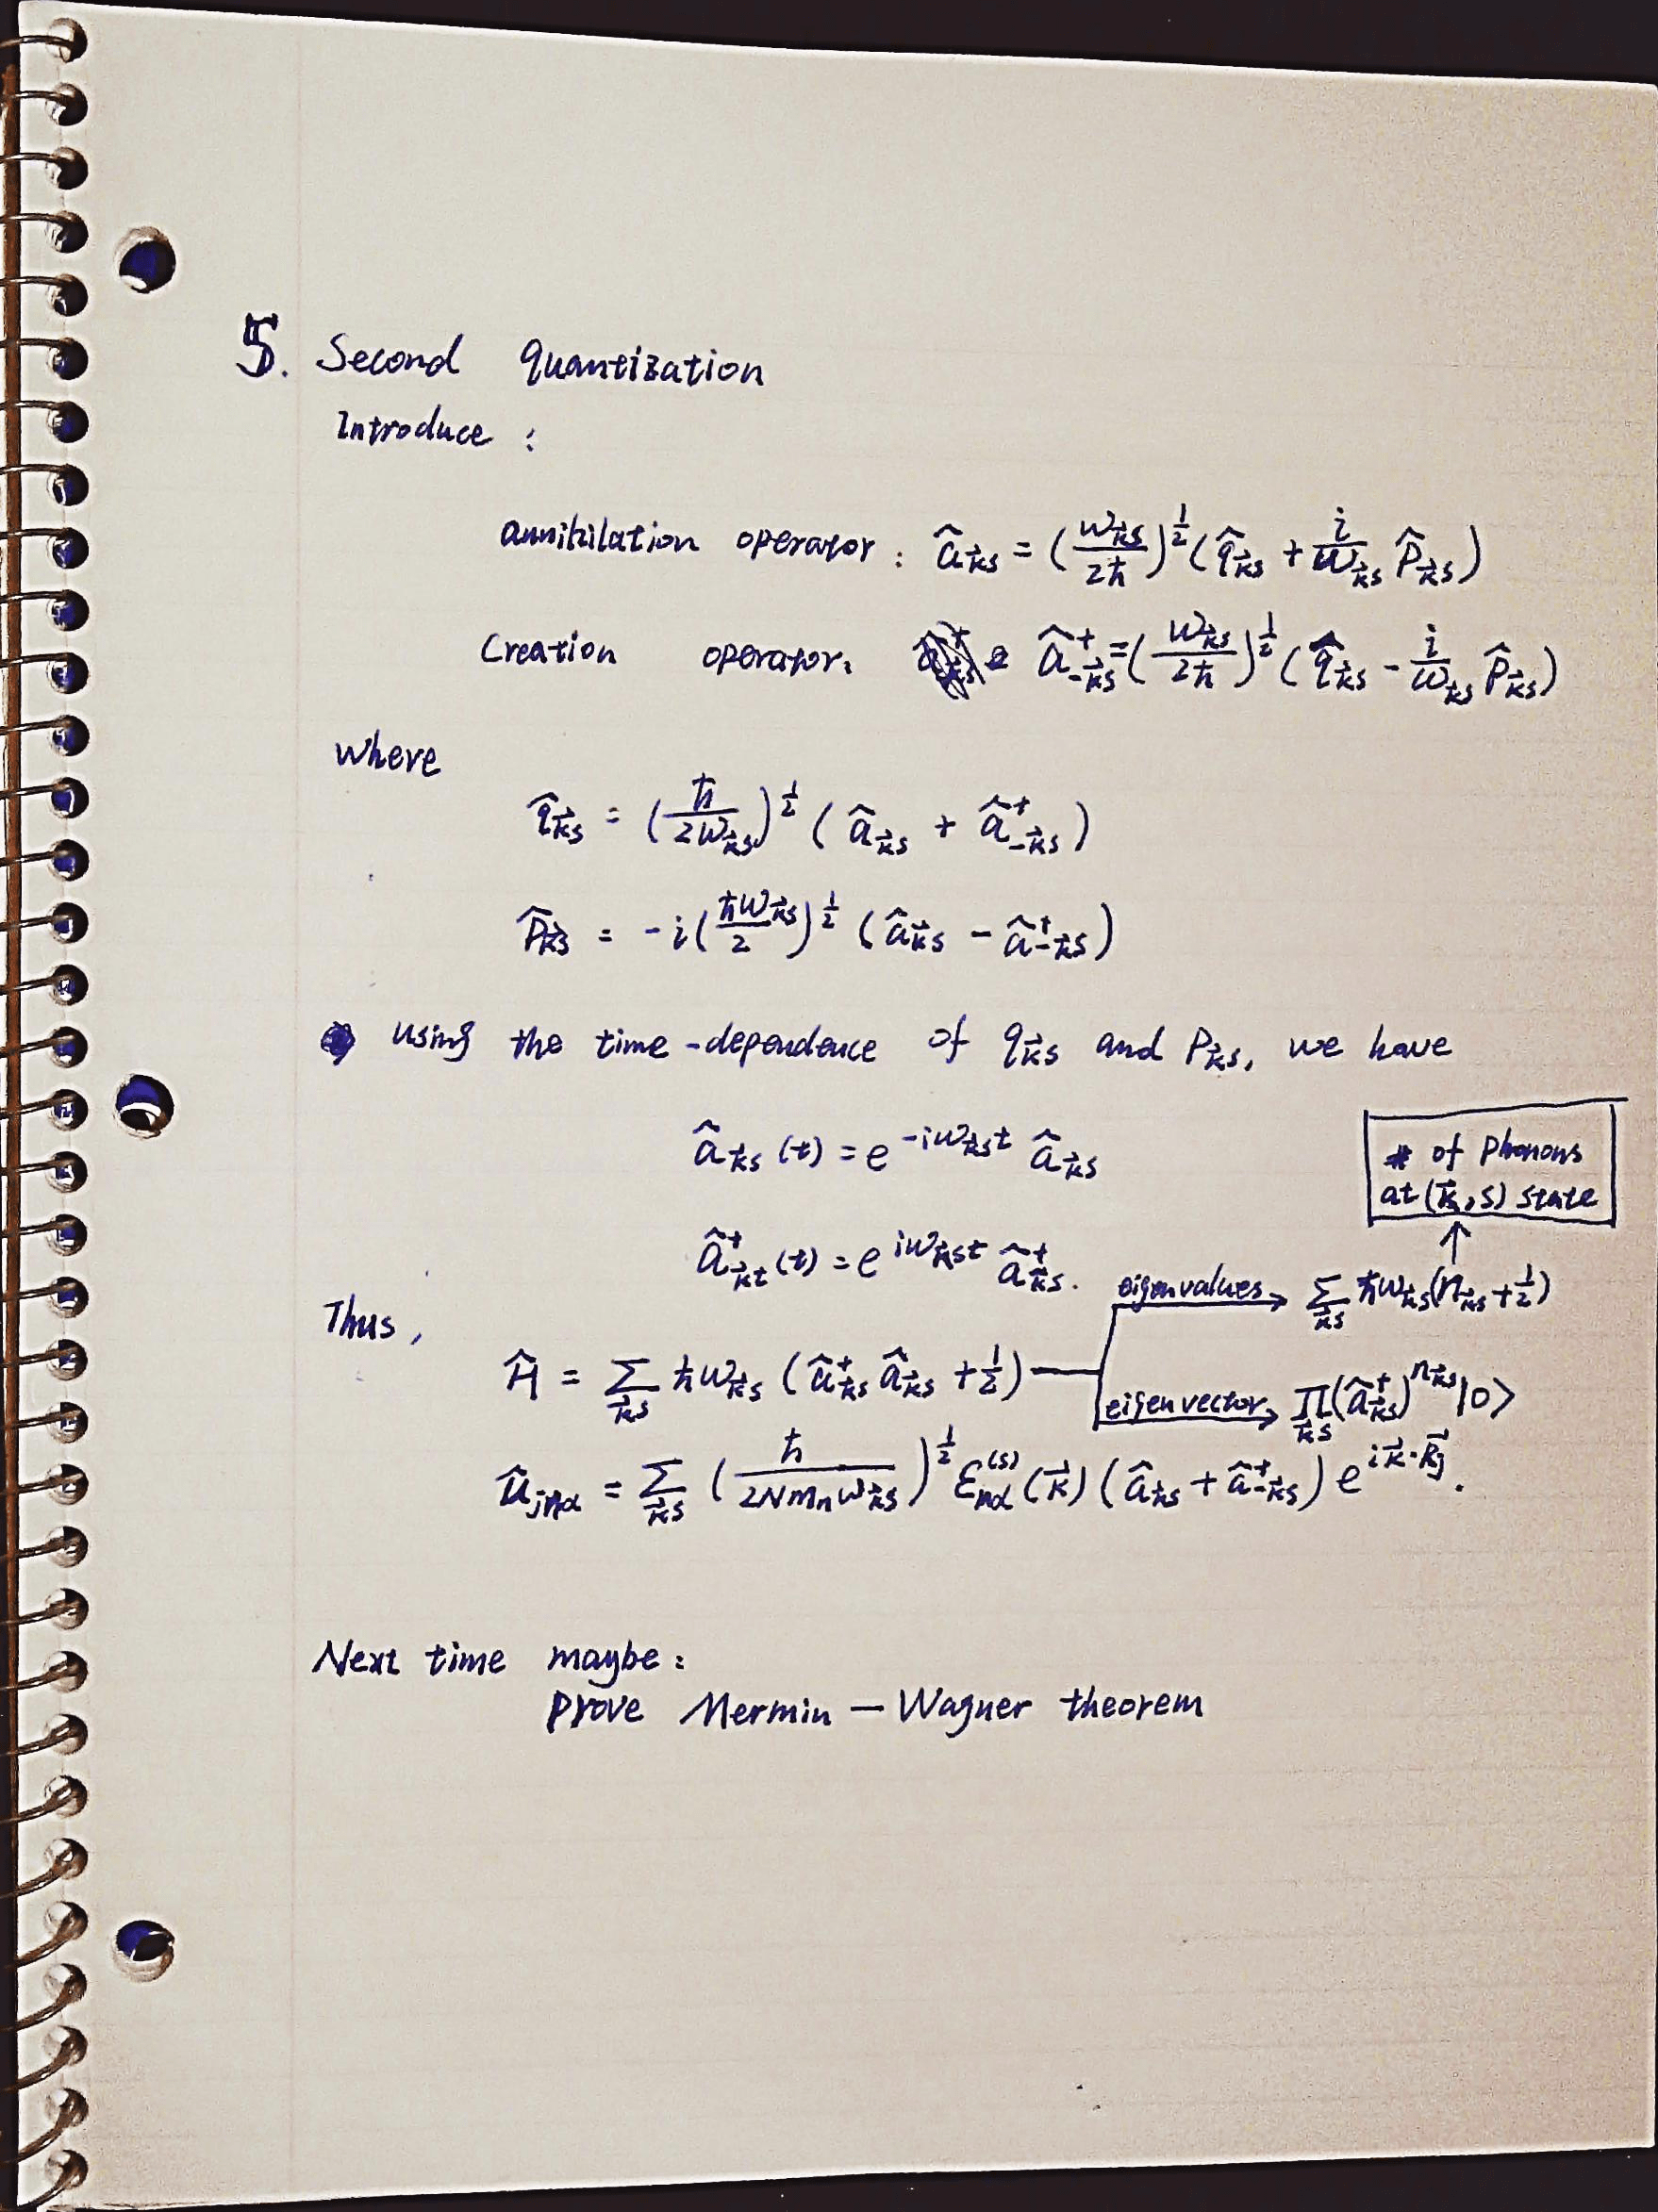 5. Second quantization
Introduce :
annihilation operator : â_{k⃗s} = (ω_{k⃗s}/2ħ)^{1/2} (q̂_{k⃗s} + i/ω_{k⃗s} p̂_{k⃗s})
Creation operator: â⁺_{-k⃗s} = (ω_{k⃗s}/2ħ)^{1/2} (q̂_{k⃗s} - i/ω_{k⃗s} p̂_{k⃗s})
where
q̂_{k⃗s} = (ħ/2ω_{k⃗s})^{1/2} (â_{k⃗s} + â⁺_{-k⃗s})
p̂_{k⃗s} = -i(ħω_{k⃗s}/2)^{1/2} (â_{k⃗s} - â⁺_{-k⃗s})
using the time-dependence of q_{k⃗s} and p_{k⃗s}, we have
â_{k⃗s}(t) = e^{-iω_{k⃗s}t} â_{k⃗s}
# of phonons
at (k⃗,s) state
â⁺_{k⃗t}(t) = e^{iω_{k⃗s}t} â⁺_{k⃗s}.
eigenvalues → Σ_{k⃗s} ħω_{k⃗s}(n_{k⃗s} + 1/2)
Thus,
Ĥ = Σ_{k⃗s} ħω_{k⃗s} (â⁺_{k⃗s} â_{k⃗s} + 1/2)
eigenvector → Π_{k⃗s} (â⁺_{k⃗s})^{n_{k⃗s}} |0>
û_{jnα} = Σ_{k⃗s} (ħ/2Nm_nω_{k⃗s})^{1/2} ε^{(s)}_{nα}(k⃗) (â_{k⃗s} + â⁺_{-k⃗s}) e^{ik⃗·R⃗_j}.
Next time maybe:
Prove Mermin — Wagner theorem